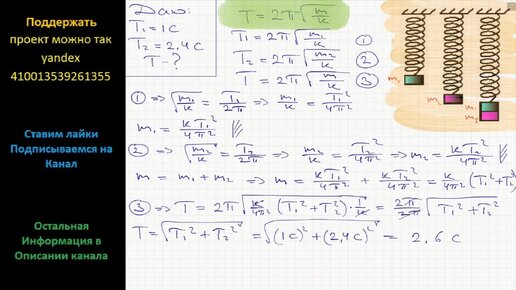 Поддержать
проект можно так
yandex
410013539261355
Ставим лайки
Подписываемся на
Канал
Остальная
Информация в
Описании канала
Дано:
T₁ = 1 c
T₂ = 2,4 c
T - ?
T = 2π√(m/k)
T₁ = 2π√(m₁/k) ①
T₂ = 2π√(m₂/k) ②
T = 2π√(m/k) ③
① => √(m₁/k) = T₁/2π => m₁/k = T₁²/4π²
m₁ = kT₁²/4π²
② => √(m₂/k) = T₂/2π => m₂/k = T₂²/4π² => m₂ = kT₂²/4π²
m = m₁ + m₂ => m = kT₁²/4π² + kT₂²/4π² = k/4π² (T₁² + T₂²)
③ => T = 2π√(k/4π² (T₁² + T₂²) 1/k) = 2π/2π √(T₁² + T₂²)
T = √(T₁² + T₂²) = √((1c)² + (2,4c)²) = 2,6 c
m₁
m₂
m₁
m₂